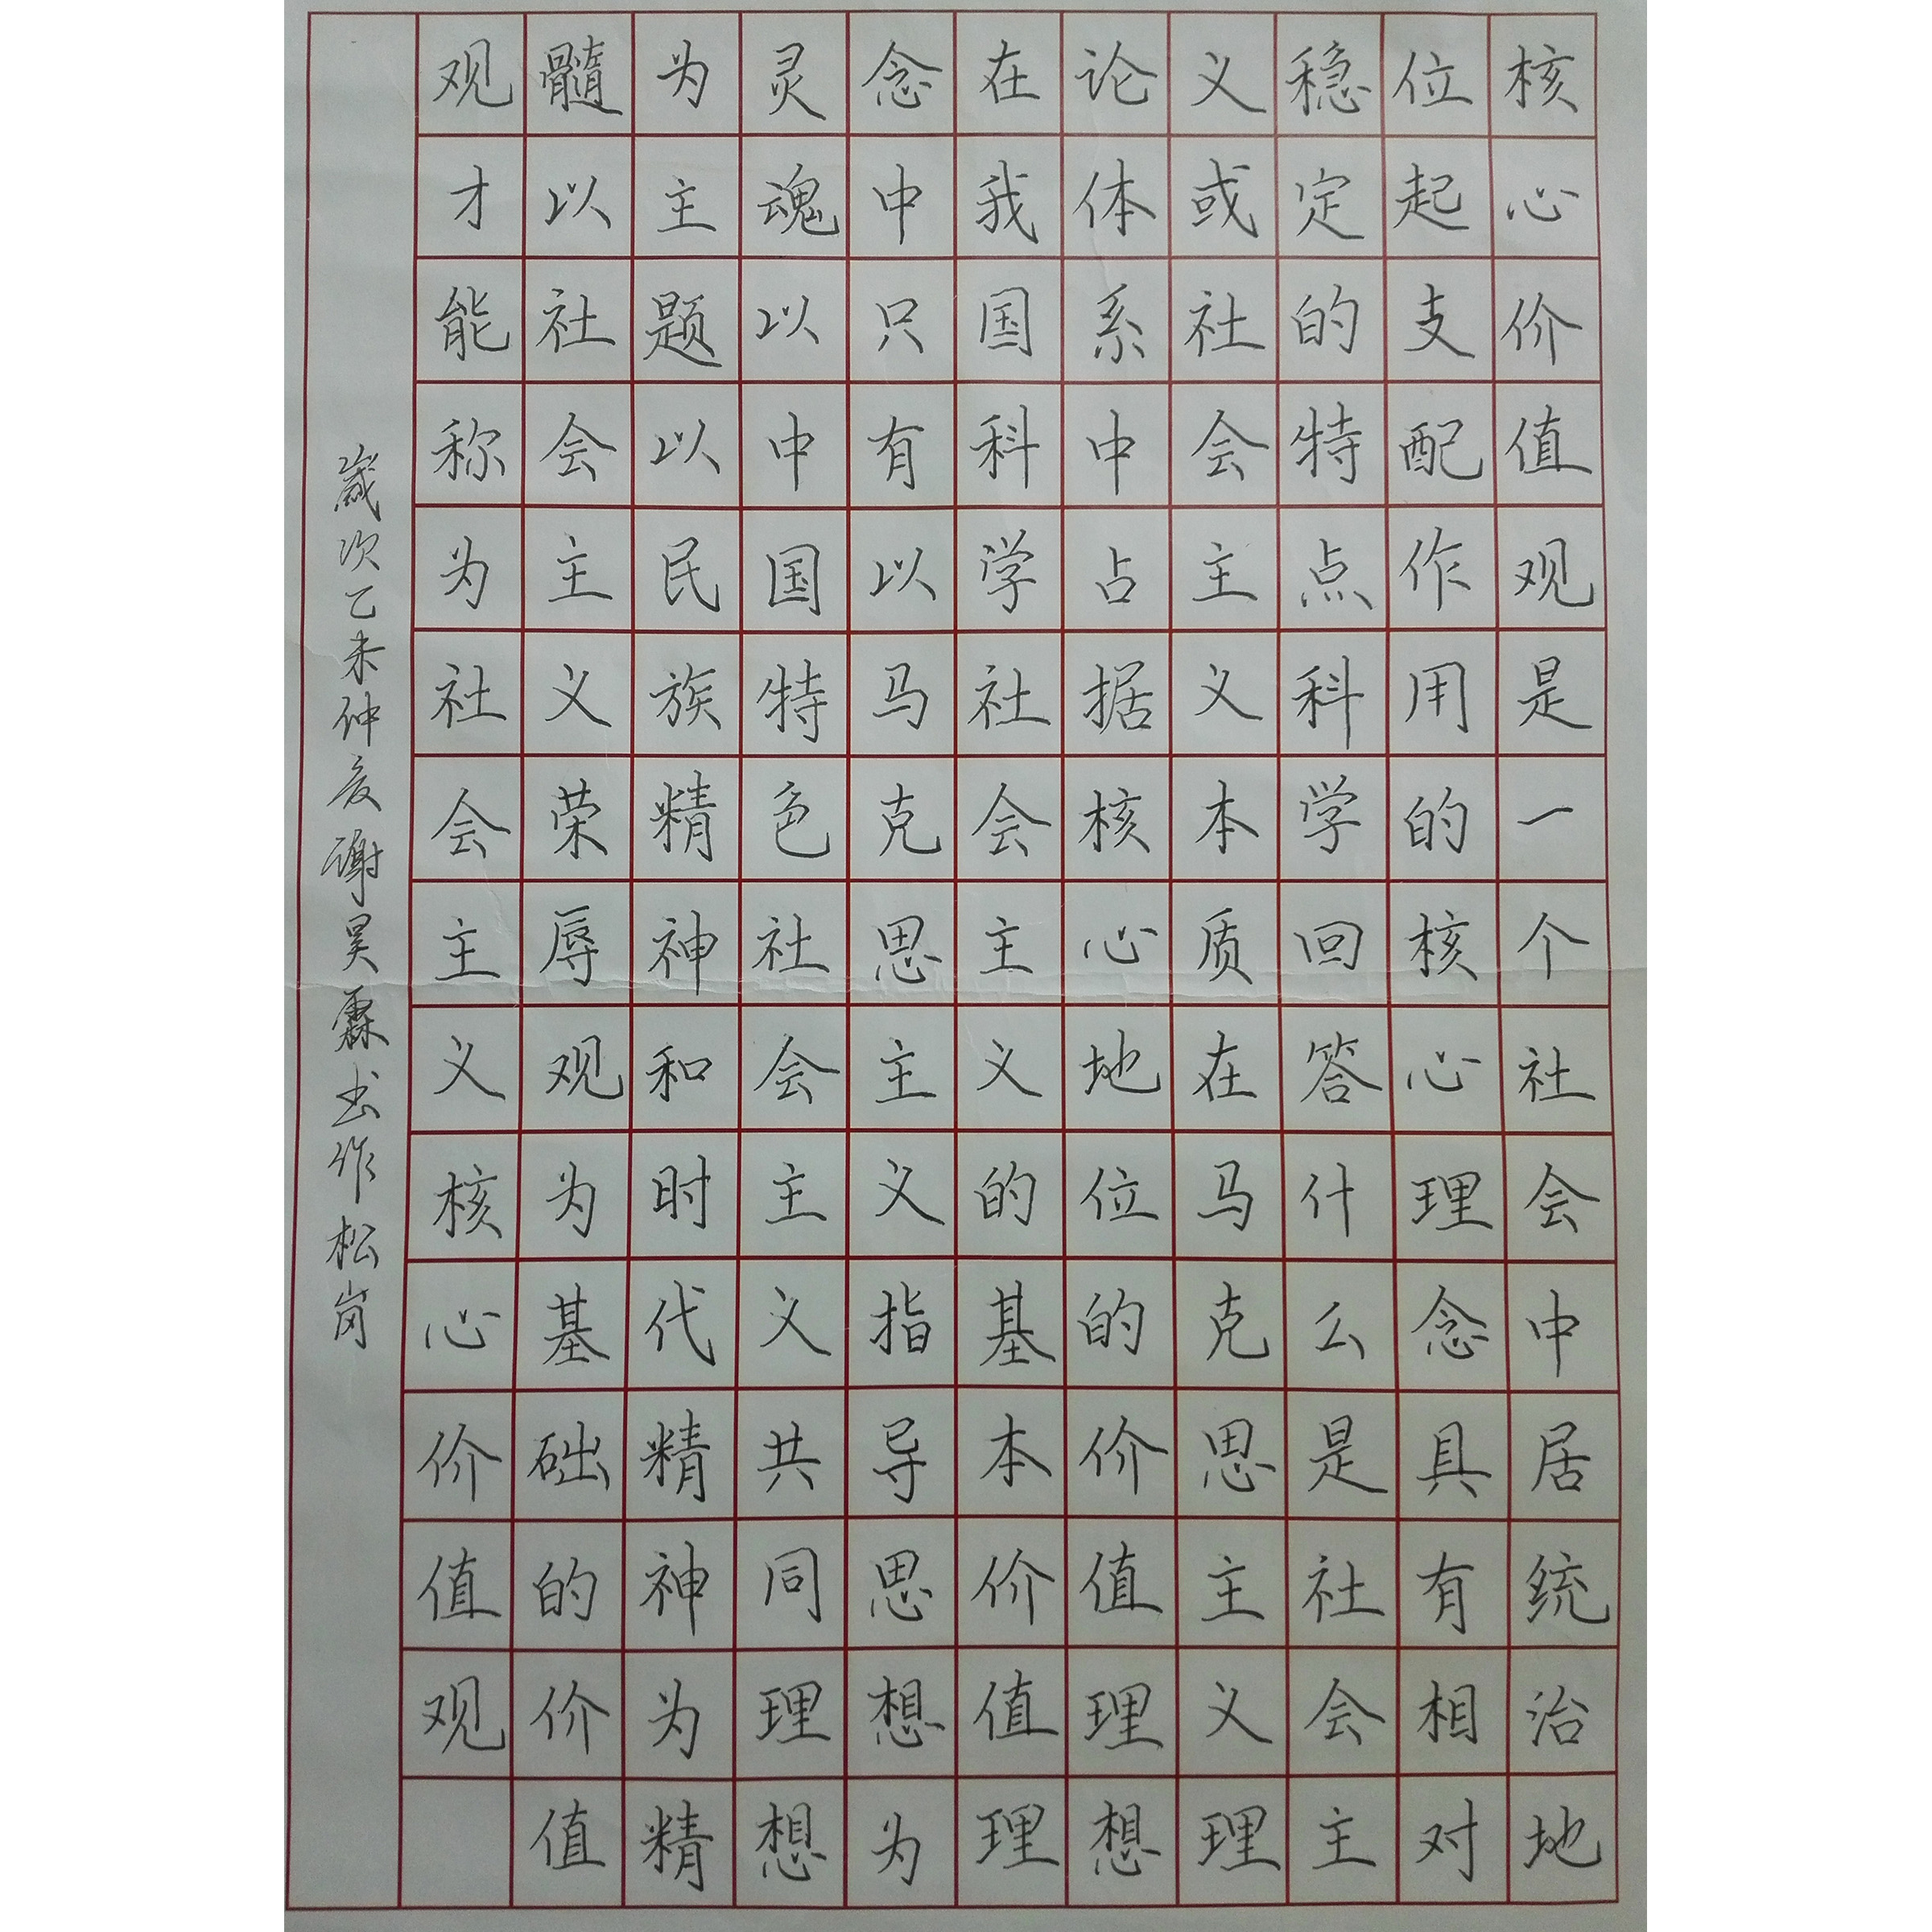 核心价值观是一个社会中居统治地
位起支配作用的核心理念具有相对
稳定的特点科学回答什么是社会主
义或社会主义本质在马克思主义理
论体系中占据核心地位的价值理想
在我国科学社会主义的基本价值理
念中只有以马克思主义指导思想为
灵魂以中国特色社会主义共同理想
为主题以民族精神和时代精神为精
髓以社会主义荣辱观为基础的价值
观才能称为社会主义核心价值观
岁次乙未仲夏谢昊霖书作松岗